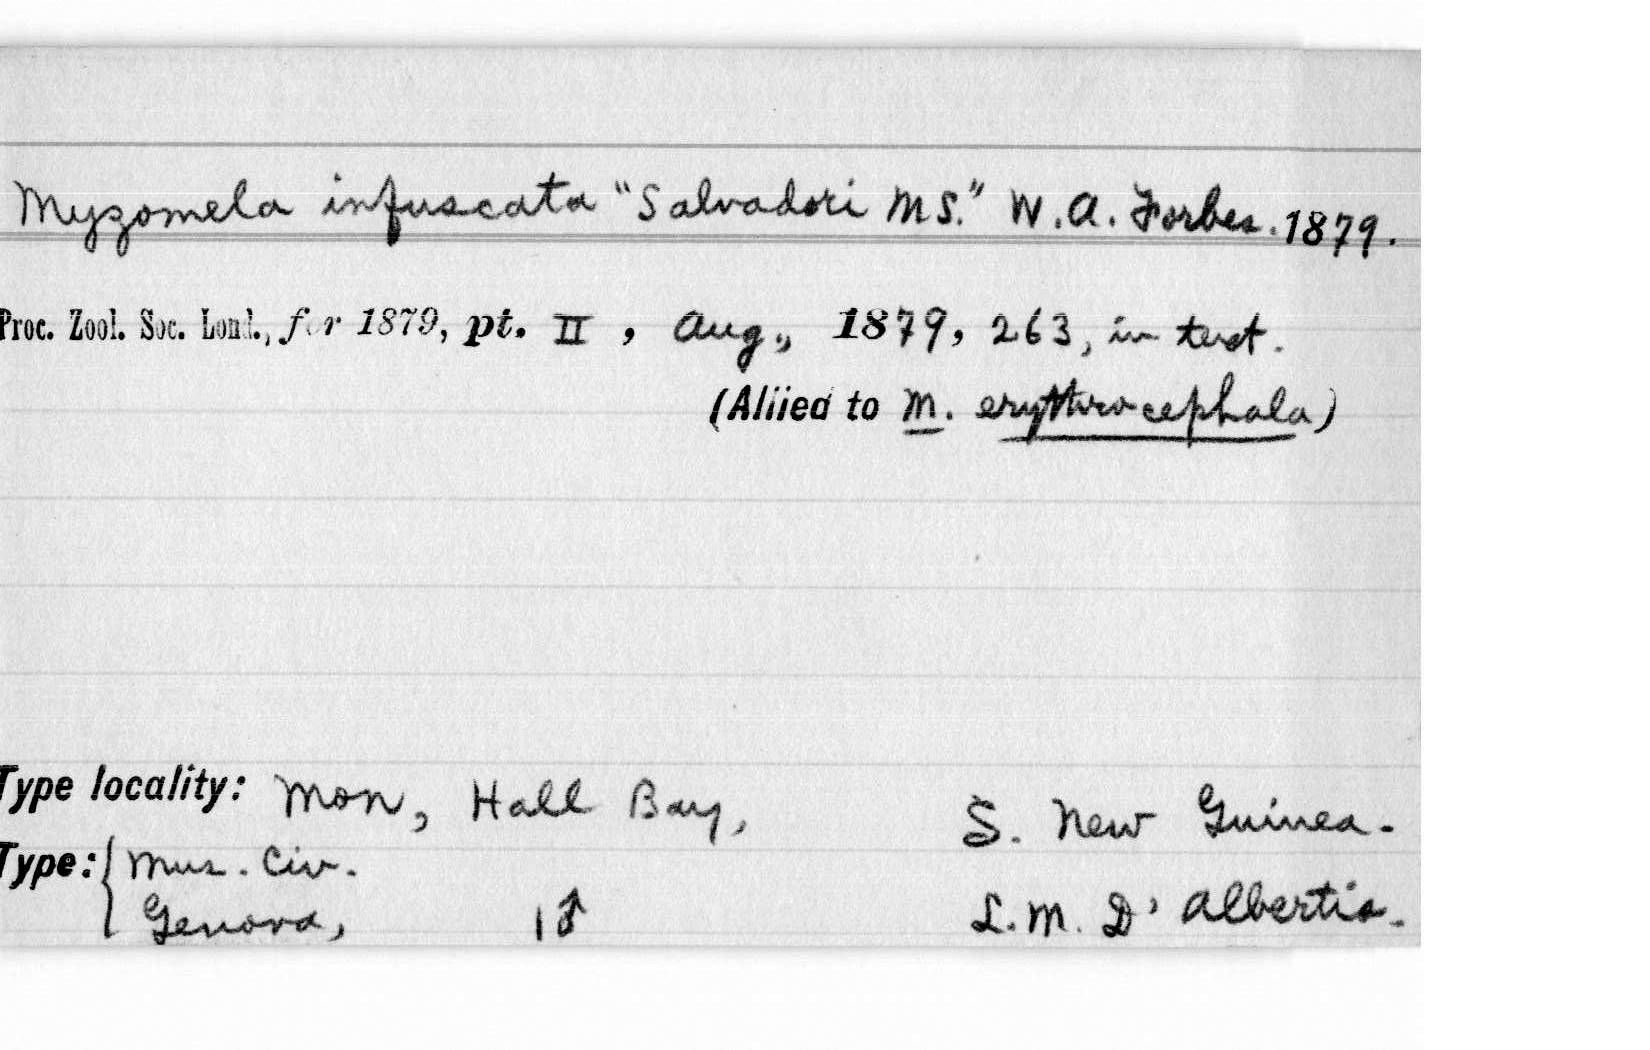 Myzomela infuscata "Salvadori MS." W.A. Forbes. 1879.
Proc. Zool. Soc. Lond., for 1879, pt. II, Aug., 1879, 263, in text.
(Allied to M. erythrocephala)
Type locality: Mon, Hall Bay, S. New Guinea.
Type: { Mus. Civ.
Genova, 1♂ L.M. D'Albertis.